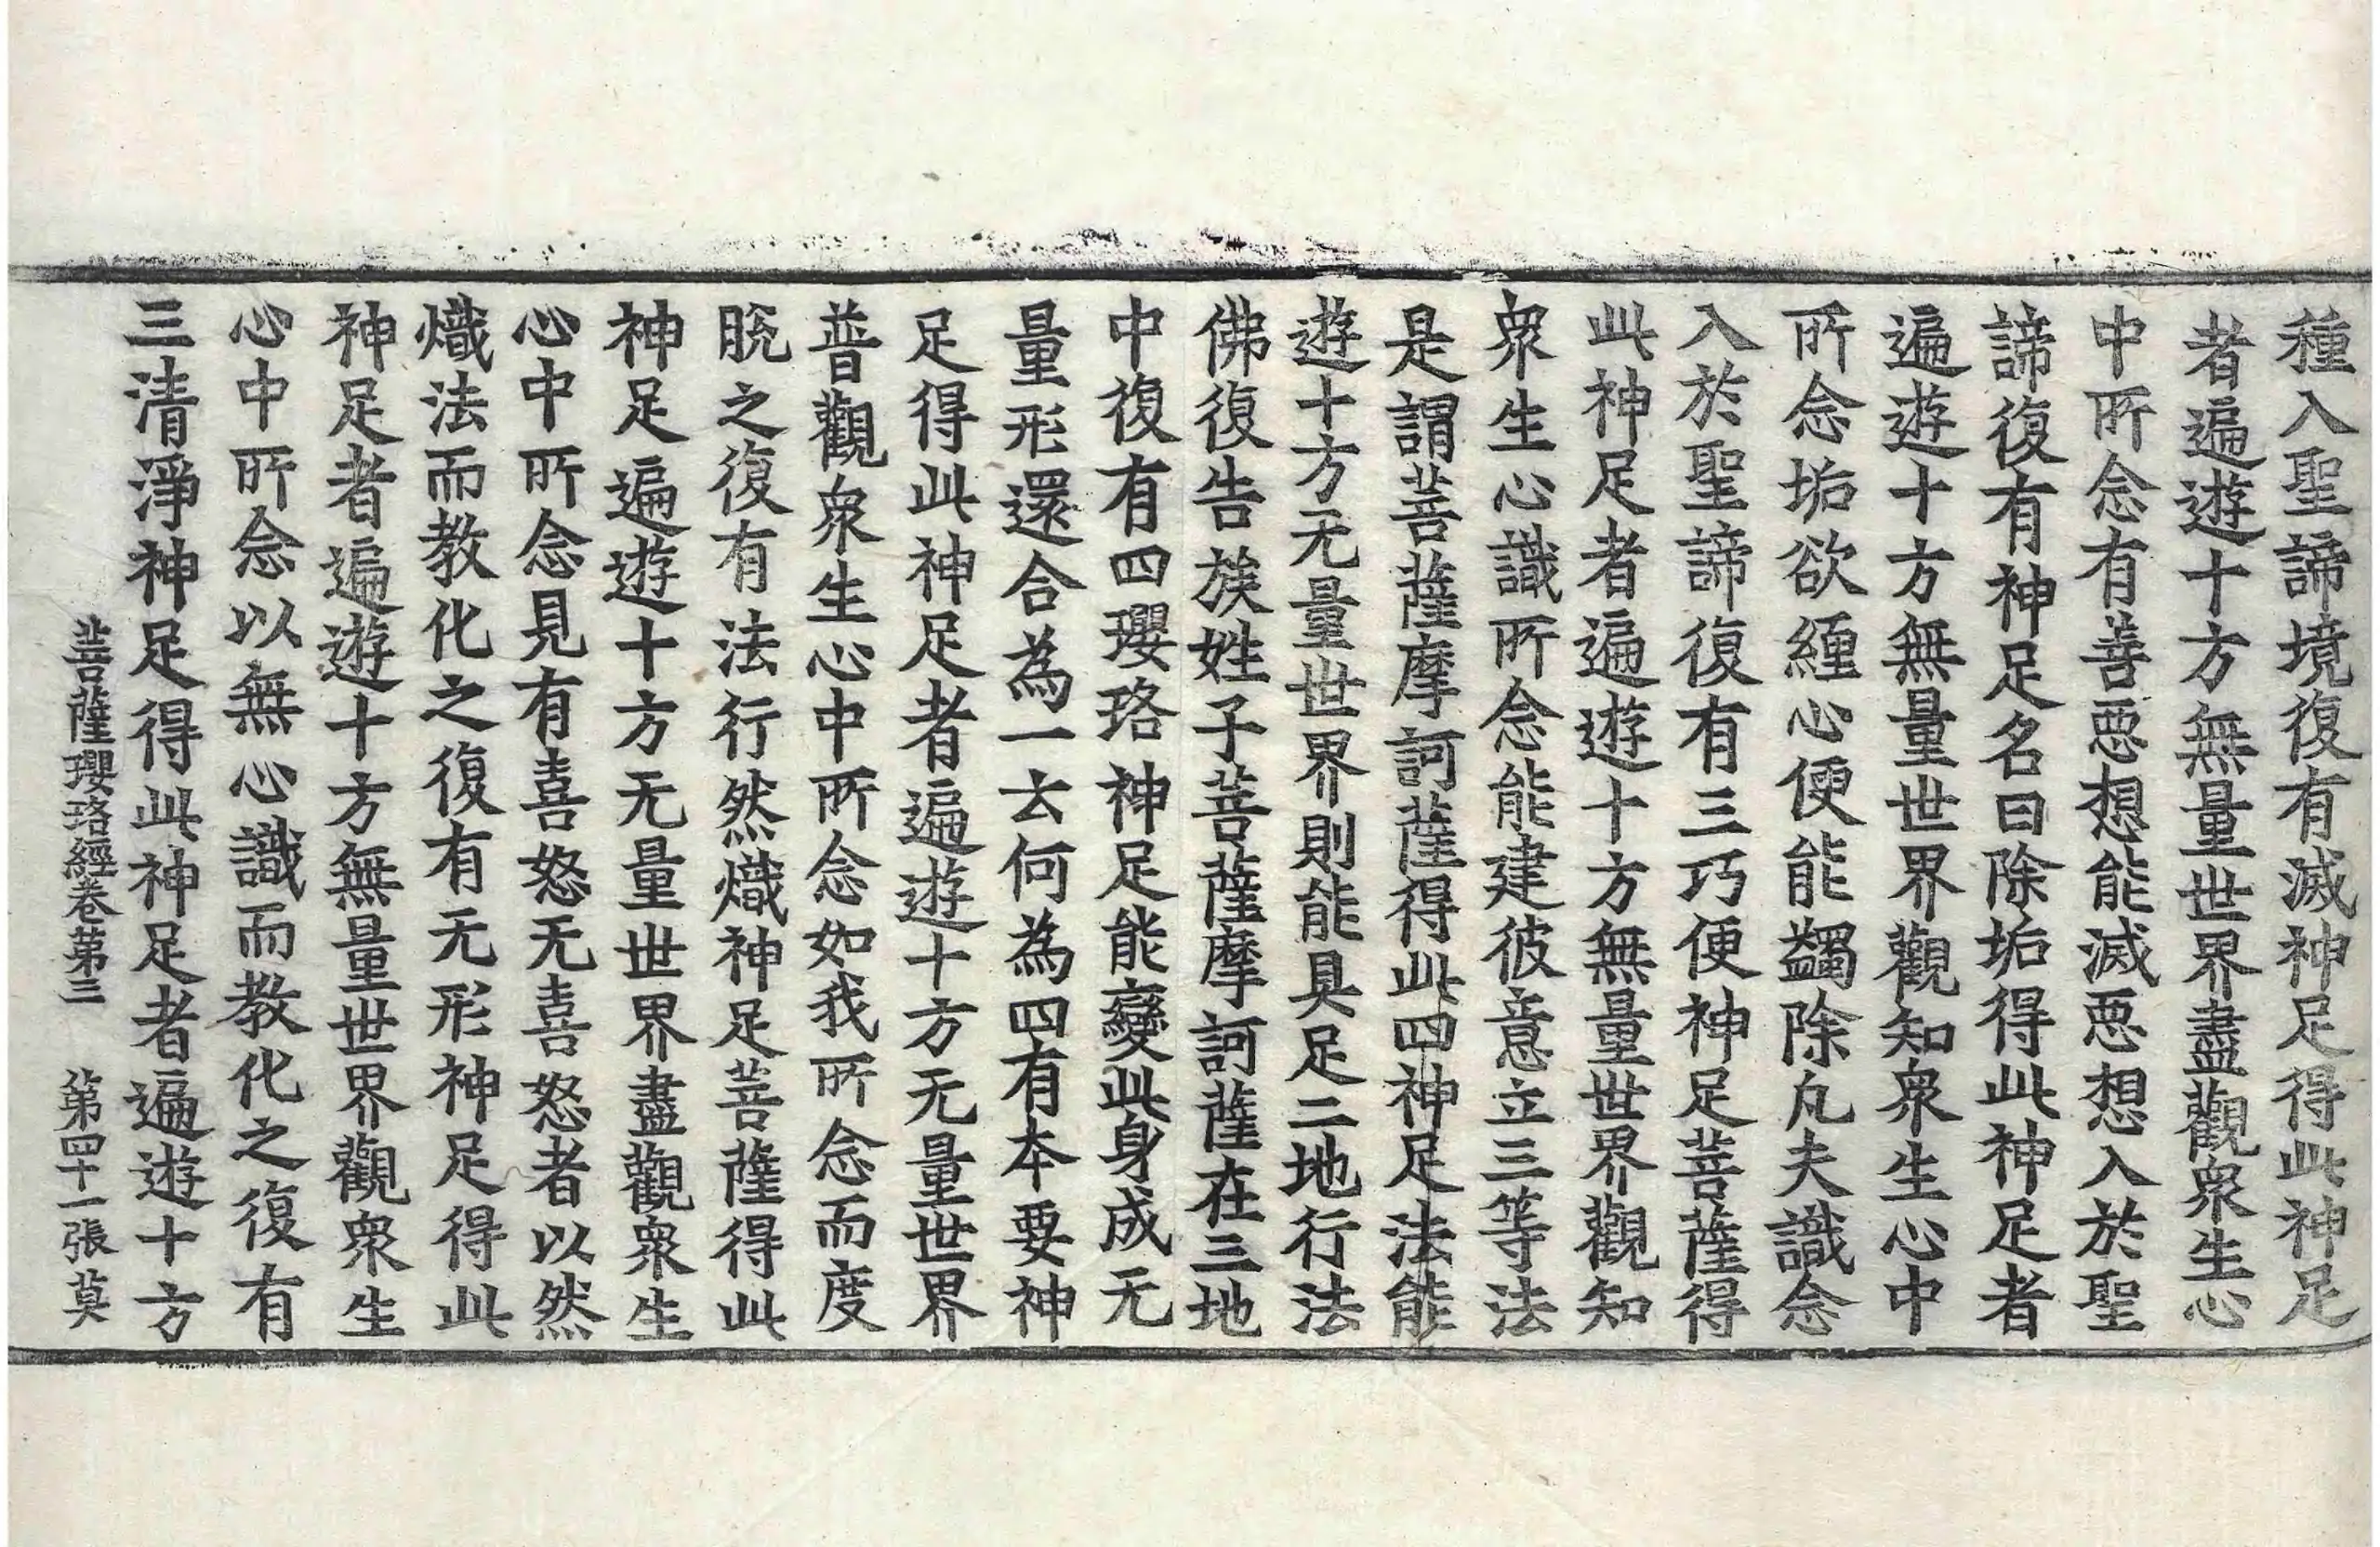 種入聖諦境復有滅神足得此神足
者遍遊十方無量世界盡觀衆生心
中所念有善惡想能滅惡想入於聖
諦復有神足名曰除垢得此神足者
遍遊十方無量世界觀知衆生心中
所念垢欲纏心便能蠲除凡夫識念
入於聖諦復有三巧便神足菩薩得
此神足者遍遊十方無量世界觀知
衆生心識所念能建彼意立三等法
是謂菩薩摩訶薩得此四神足法能
遊十方无量世界則能具足二地行法
佛復告族姓子菩薩摩訶薩在三地
中復有四瓔珞神足能變此身成无
量形還合為一云何為四有本要神
足得此神足者遍遊十方无量世界
普觀衆生心中所念如我所念而度
脫之復有法行然熾神足菩薩得此
神足遍遊十方无量世界盡觀衆生
心中所念見有喜怒无喜怒者以然
熾法而教化之復有无形神足得此
神足者遍遊十方無量世界觀衆生
心中所念以無心識而教化之復有
三清淨神足得此神足者遍遊十方
菩薩瓔珞經卷第三 第四十一張 莫